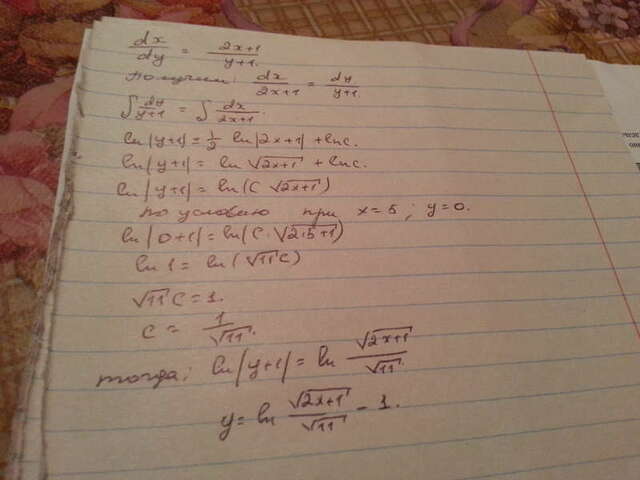 dx/dy = 2x+1/y+1.
Получим: dx/2x+1 = dy/y+1.
∫ dy/y+1 = ∫ dx/2x+1.
ln|y+1| = 1/2 ln|2x+1| + lnc.
ln|y+1| = ln √2x+1 + lnc.
ln|y+1| = ln(C √2x+1)
по условию при x=5; y=0.
ln|0+1| = ln(C·√2·5+1)
ln 1 = ln(√11 C)
√11 C = 1.
C = 1/√11.
тогда: ln|y+1| = ln √2x+1/√11
y = ln √2x+1/√11 - 1.